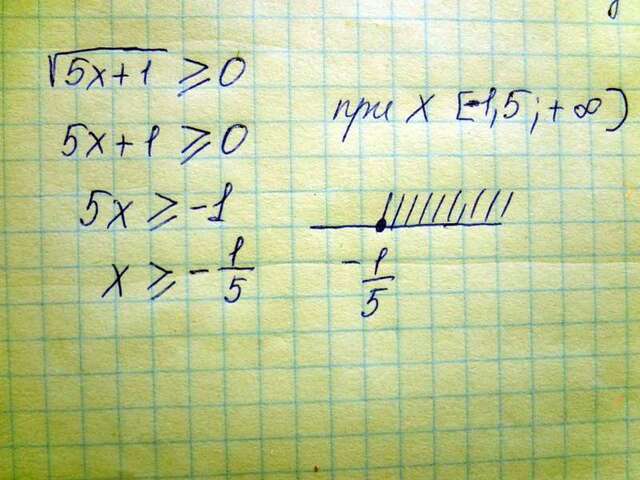 √5x+1 ≥ 0
5x+1 ≥ 0
5x ≥ -1
x ≥ -1/5
при x [-1,5;+∞)
-1/5